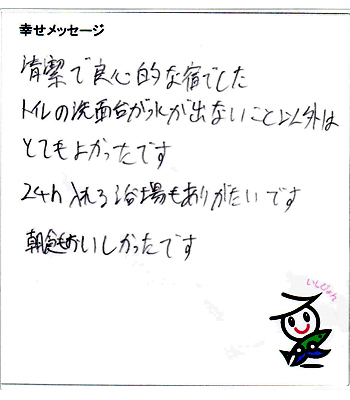 幸せメッセージ
清潔で良心的な宿でした
トイレの洗面台が水が出ないこと以外は
とてもよかったです
24h入れる浴場もありがたいです
朝食もおいしかったです